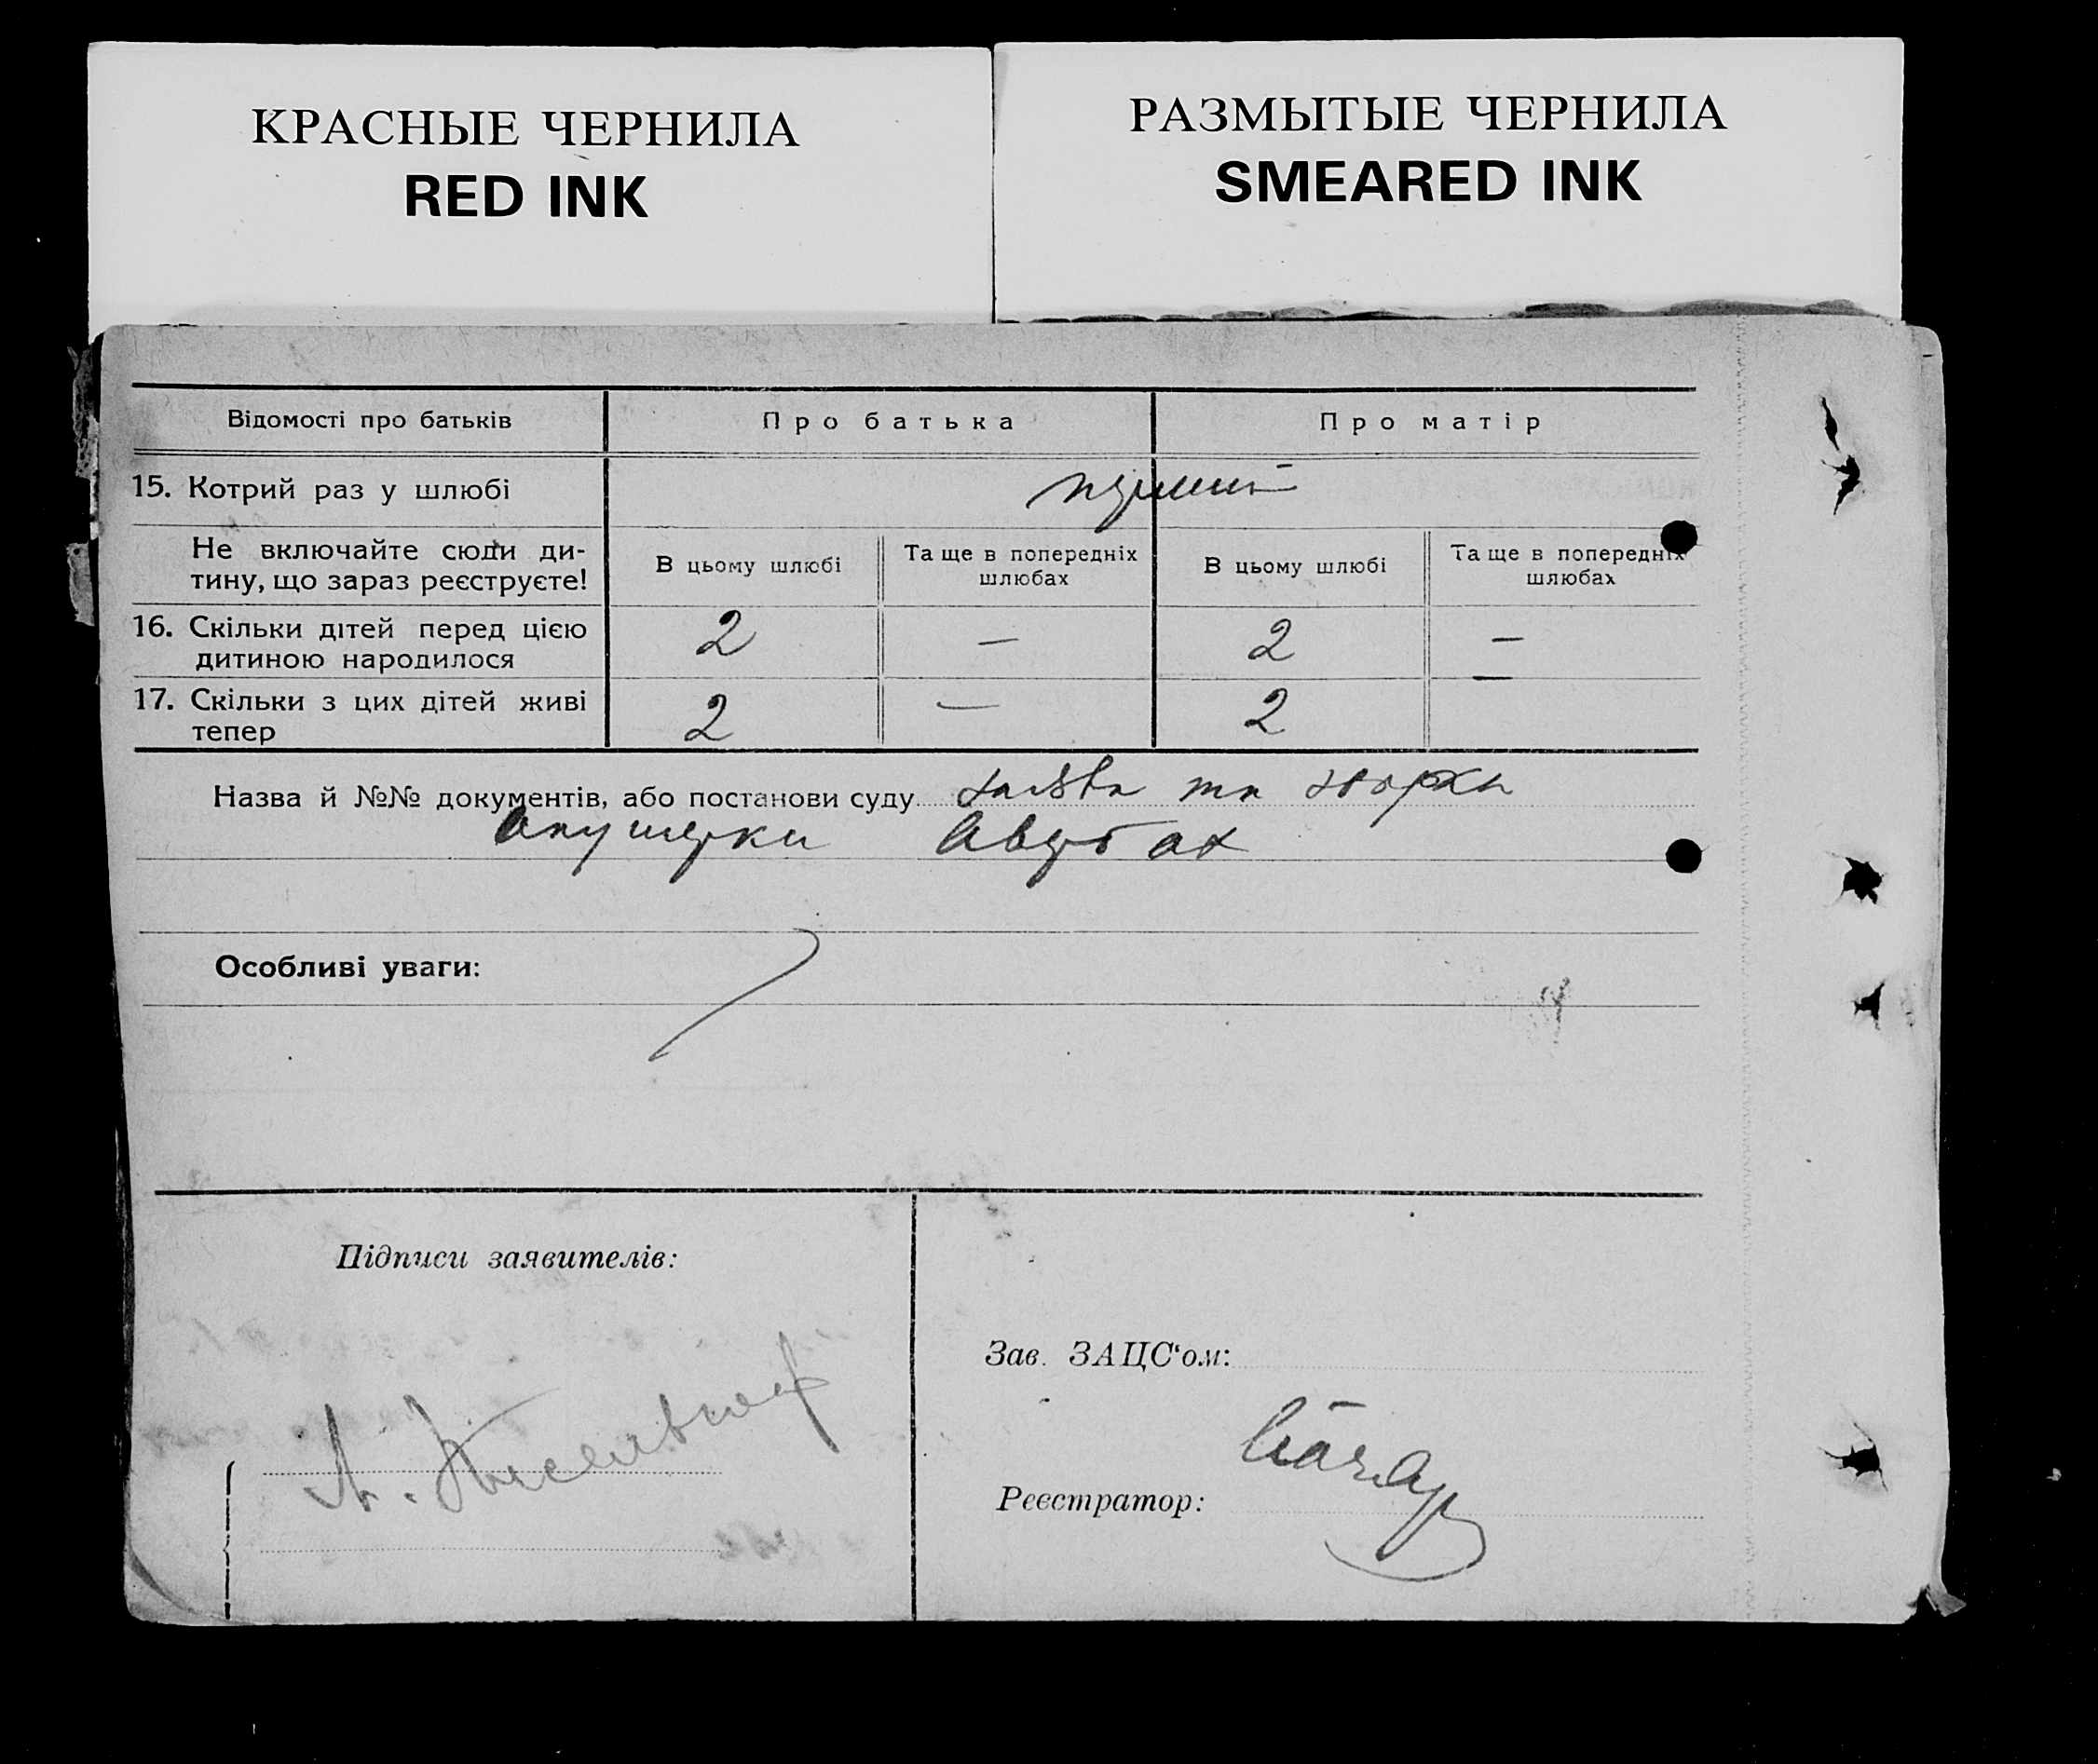 КРАСНЫЕ ЧЕРНИЛА
RED INK
РАЗМЫТЫЕ ЧЕРНИЛА
SMEARED INK
Відомості про батьків
Про батька
Про матір
15. Котрий раз у шлюбі
Не включайте сюди ди-
тину, що зараз реєструєте!
В цьому шлюбі
Та ще в попередніх
шлюбах
В цьому шлюбі
Та ще в попередніх
шлюбах
16. Скільки дітей перед цією
дитиною народилося
2
—
2
—
17. Скільки з цих дітей живі
тепер
2
—
2
—
Назва й №№ документів, або постанови суду заява та
акушерки Авербах
Особливі уваги:
Підписи заявителів:
Зав. ЗАЦС'ом:
Реєстратор: